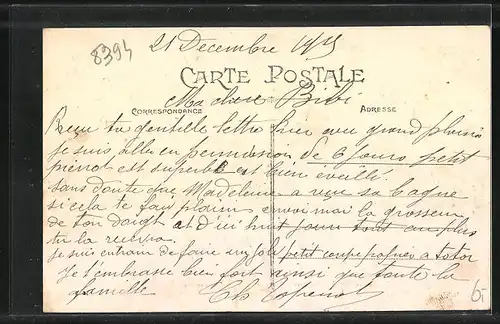 8394
21 Decembre 1915
CARTE POSTALE
Ma chere Bibi
CORRESPONDANCE
ADRESSE
Recu ta gentille lettre hier avec grand plaisir
je suis allé en permission de 6 jours petit
pierrot est superbe et bien éveillé.
sans doute que Madeleine a vue sa bague
si cela te fais plaisir envoi moi la grosseur
de ton doigt et d'ici huit jours tout au plus
tu la recevra.
Je suis entrain de faire un joli petit coupe papier a totor
Je t'embrasse bien fort ainsi que toute la
famille
Ch
6.-